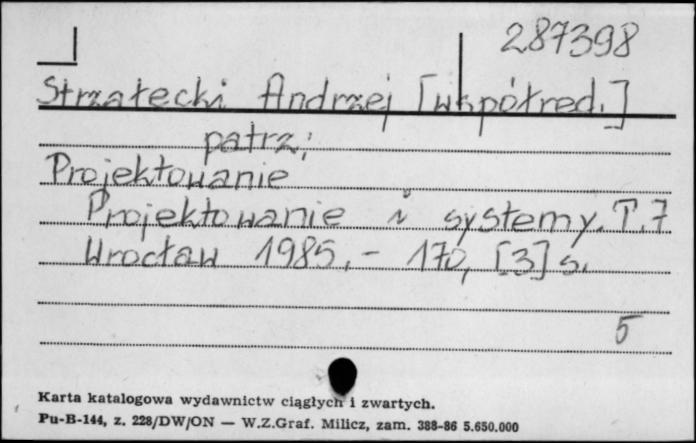 287398
Strzałecki Andrzej [współred.]
patrz:
Projektowanie
Projektowanie i systemy. T. 7
Wrocław 1985. - 170, [3] s.
5
Karta katalogowa wydawnictw ciągłych i zwartych.
Pu-B-144, z. 228/DW/ON — W.Z.Graf. Milicz, zam. 388-86 5.650.000